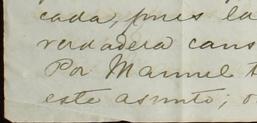 cada, pues la
verdadera caus
Por Manuel
este asunto;